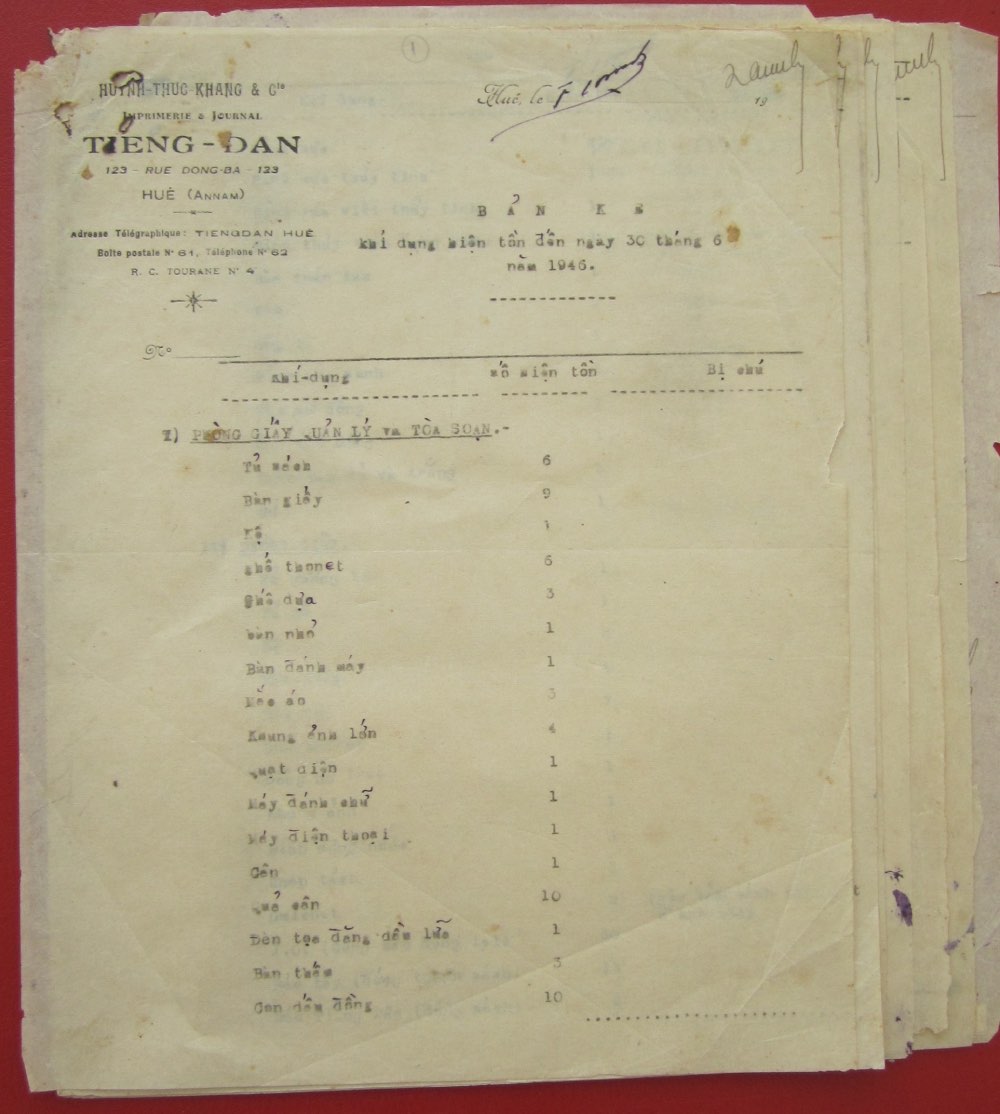 1
HUỲNH-THUC-KHANG & Cie
IMPRIMERIE & JOURNAL
TIENG-DAN
123 - RUE DONG-BA - 123
HUÊ (ANNAM)
Adresse Télégraphique: TIENGDAN HUÊ
Boîte postale No 61, Téléphone No 62
R. C. TOURANE No 4
Huê, le
19
BẢN KÊ
khí dụng hiện tồn đến ngày 30 tháng 6
năm 1946.
No
Khí-dụng số hiện tồn Bị chú
I) PHÒNG GIẤY QUẢN LÝ và TÒA SOẠN.-
Tủ sách 6
Bàn giấy 9
Kệ 1
ghế thonet 6
Ghế dựa 3
bàn nhỏ 1
Bàn đánh máy 1
Mắc áo 3
Khung ảnh lớn 4
Quạt điện 1
Máy đánh chữ 1
Máy điện thoại 1
Cân 1
Quả cân 10
Đèn tọa đăng dầu lửa 1
Bàn thấm 3
Con dấu đồng 10